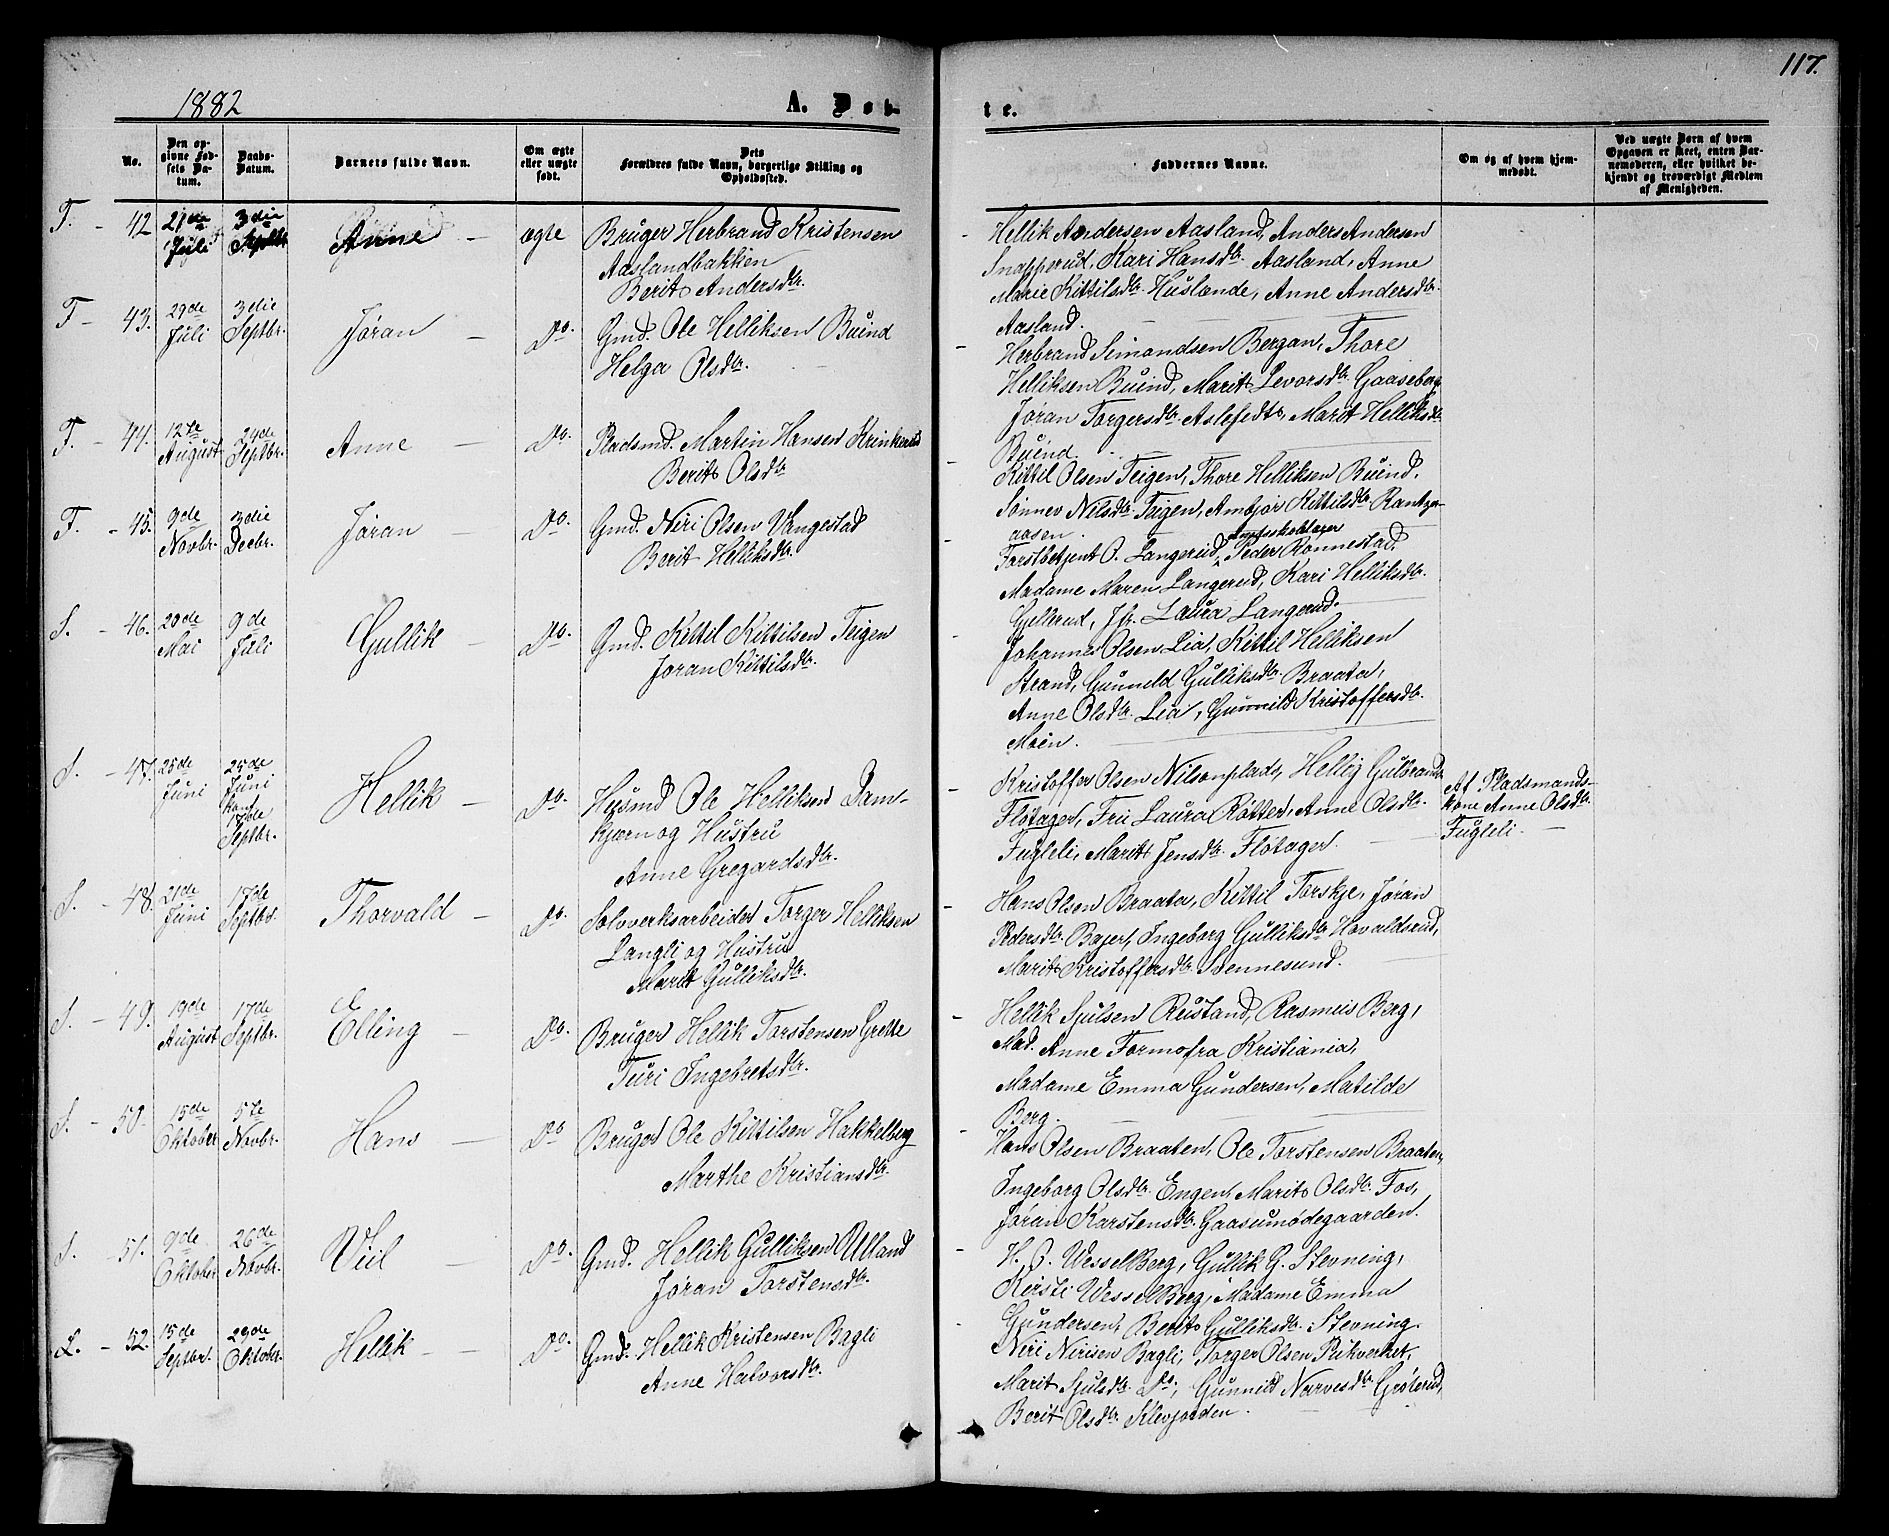 1882
A. Døb-
te.
117.
No.
Den opgivne Fødsels Datum.
Daabs-Datum.
Barnets fulde Navn.
Om ægte eller uægte født.
Dets Forældres fulde Navn, borgerlige Stilling og Opholdssted.
Faddernes Navne.
Om og af hvem hjemmedøbt.
Ved uægte Børn af hvem Opgaven er skeet, enten Barnemoderen, eller hvilket bekjendt og troværdigt Medlem af Menigheden.
T. - 42 21de Juli 3die Septbr. Anne - ægte Bruger Herbrand Kristensen
Aaslandbakken
Berit Andersdtr.
- Hellik Andersen Aasland, Anders Andersen
Snapperud, Kari Hansdtr. Aasland, Anne
Marie Kittilsdtr. Huslende, Anne Andersdtr.
Aasland.
T - 43. 29de Juli 3die Septbr. Jøran - Do. Gmd. Ole Helliksen Buind
Helga Olsdtr.
- Herbrand Simondsen Bergan, Thore
Helliksen Buind, Marit Levorsdtr. Gaaseberg
Jøran Torgersdtr. Aslefedt, Marit Helliksdtr.
Buind.
T. - 44. 12te August 24de Septbr. Anne - Do. Pladsmd. Martin Hansen Krinkerud
Berit Olsdtr
- Kittil Olsen Teigen, Thore Helliksen Buind.
Sønnev Nilsdtr. Teigen, Ambjør Kittilsdtr.
aasen.
T. - 45. 9de Novbr. 3die Decbr. Jøran - Do. Gmd. Niri Olsen Vangestad
Berit Helliksdtr.
- Forstbetjent O. Langerud, Peder Ronnestad,
Madame Maren Langerud, Kari Helliksdtr.
Gjellerud, Jfr. Laura Langerud.
S. - 46. 20de Mai 9de Juli Gullik - Do. Gmd. Kittil Kittilsen Teigen
Jøran Kittilsdtr.
- Johannes Olsen Lia, Kittil Helliksen
Strand, Gunneld Gulliksdtr. Braata,
Anne Olsdtr. Lia, Gunnild Kristoffersdtr.
Moen.
S. - 47. 25de Juni 25de Juni 17de Septbr. Hellik - Do. Husmd Ole Helliksen Dam-
kjærn og Hustru
Anne Gregardsdtr.
- Kristoffer Olsen Nilsonplads, Hellig Gulbrands
Fløtager, Fru Laura Røtter, Anne Olsdtr.
Fugleli, Marit Jensdtr. Fløtager.
Af Pladsmands-
kone Anne Olsdtr.
Fugleli.
S. - 48. 21de Juni 17de Septbr. Thorvald - Do. Solvverksarbeider Torger Helliksen
Langli og Hustru
Marit Gulliksdtr.
- Hans Olsen Braata, Kittil Torskje, Jøran
Pedersdtr. Bajer, Ingeborg Gulliksdtr. Havaldsrud,
Marit Kristoffersdtr. Stennesund.
S. - 49. 19de August 17de Septbr. Elling - Do. Bruger Hellik Torstensen Grette
Turi Ingebretsdtr.
- Hellik Sjulsen Rustand, Rasmus Berg,
Mad. Anne Formo fra Kristiania,
Madame Emma Gundersen, Matilde
Berg.
S. - 50. 15de Oktober 5te Novbr. Hans - Do Bruger Ole Kittilsen Hakkelberg
Marthe Kristiansdtr.
- Hans Olsen Braaten, Ole Torstensen Braaten,
Ingeborg Olsdtr. Engen, Marit Olsdtr. Fos,
Jøran Karstensdtr. Gaasumødegaarden.
S. - 51. 9de Oktober 26de Novbr. Viil - Do. Gmd. Hellik Gulliksen Ulland
Jøran Torstensdtr.
- H. O. Wessel Berg, Gullik G. Stevning,
Kirsti Wessel Berg, Madame Emma
Gundersen, Berit Gulliksdtr. Stevning.
L. - 52. 15de Septbr. 29de Oktober. Hellik - Do. Gmd. Hellik Kristensen Bagli
Anne Halvorsdtr.
- Niri Nirisen Bagli, Torger Olsen Pukverket,
Marit Sjulsdtr. Do., Gunnild Narvesdtr. Grøterud,
Berit Olsdtr. Klevjorden.